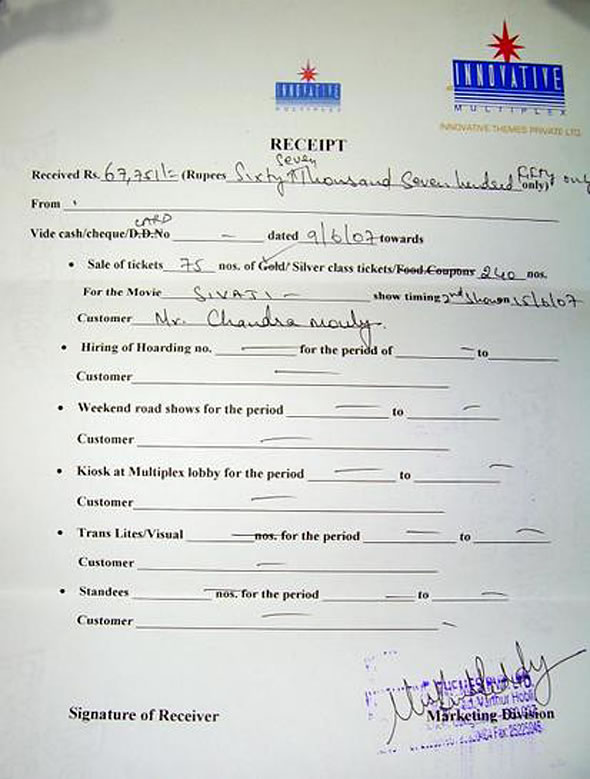 INNOVATIVE
MULTIPLEX
INNOVATIVE
MULTIPLEX
INNOVATIVE THEMES PRIVATE LTD.
RECEIPT
Received Rs. 67,751/= (Rupees Sixty Seven Thousand Seven hundred Fifty only) only
From
Vide cash/cheque/D.D.No CARD – dated 9/6/07 towards
• Sale of tickets 75 nos. of Gold/ Silver class tickets/Food Coupons 240 nos.
For the Movie SIVAJI – show timing 2nd show on 15/6/07
Customer Mr. Chandra mouly.
• Hiring of Hoarding no. — for the period of — to
Customer —
• Weekend road shows for the period — to —
Customer —
• Kiosk at Multiplex lobby for the period — to —
Customer —
• Trans Lites/Visual — nos. for the period — to —
Customer —
• Standees — nos. for the period — to —
Customer —
Signature of Receiver
Marketing Division